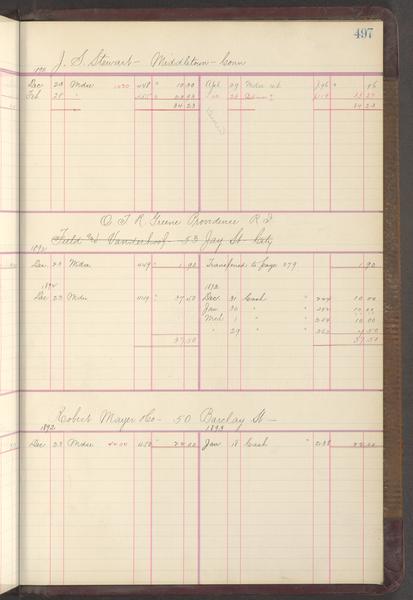 497
J. S. Stewart - Middletown - Conn
Dec 20 Mdse 448 10.00 Apl 29 Mdse ret 96
Feb 28 "
34.23 34.23
O T R Greene Providence R I
Field & Vanderhoof 53 Jay St City
1892
Dec 23 Mdse 449 1.90 Transferred to page 279 1.90
1892
Dec 23 Mdse 37.50 Dec 31 Cash " 10.00
Jan 30 " " 10.00
Mch 1 " " 10.00
" 29 " " 7.50
37.50 37.50
Robert Mayer & Co - 50 Barclay St -
1892 1893
Dec 23 Mdse 450 " 22.00 Jan 18 Cash " 238 22.00